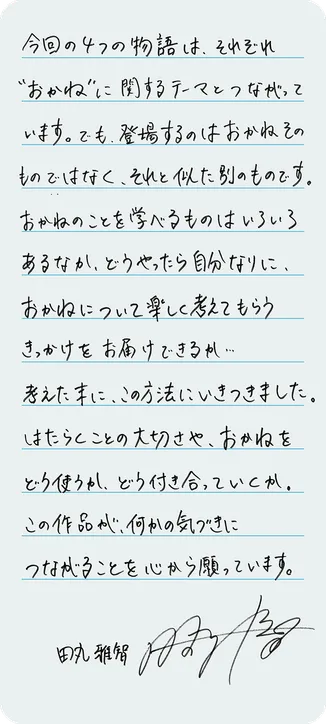 今回の4つの物語は、それぞれ
"おかね"に関するテーマとつながって
います。でも、登場するのはおかねその
ものではなく、それと似た別のものです。
おかねのことを学べるものはいろいろ
あるなか、どうやったら自分なりに、
おかねについて楽しく考えてもらう
きっかけをお届けできるか…
考えた末に、この方法にいきつきました。
はたらくことの大切さや、おかねを
どう使うか、どう付き合っていくか。
この作品が、何かの気づきに
つながることを心から願っています。
田丸雅智